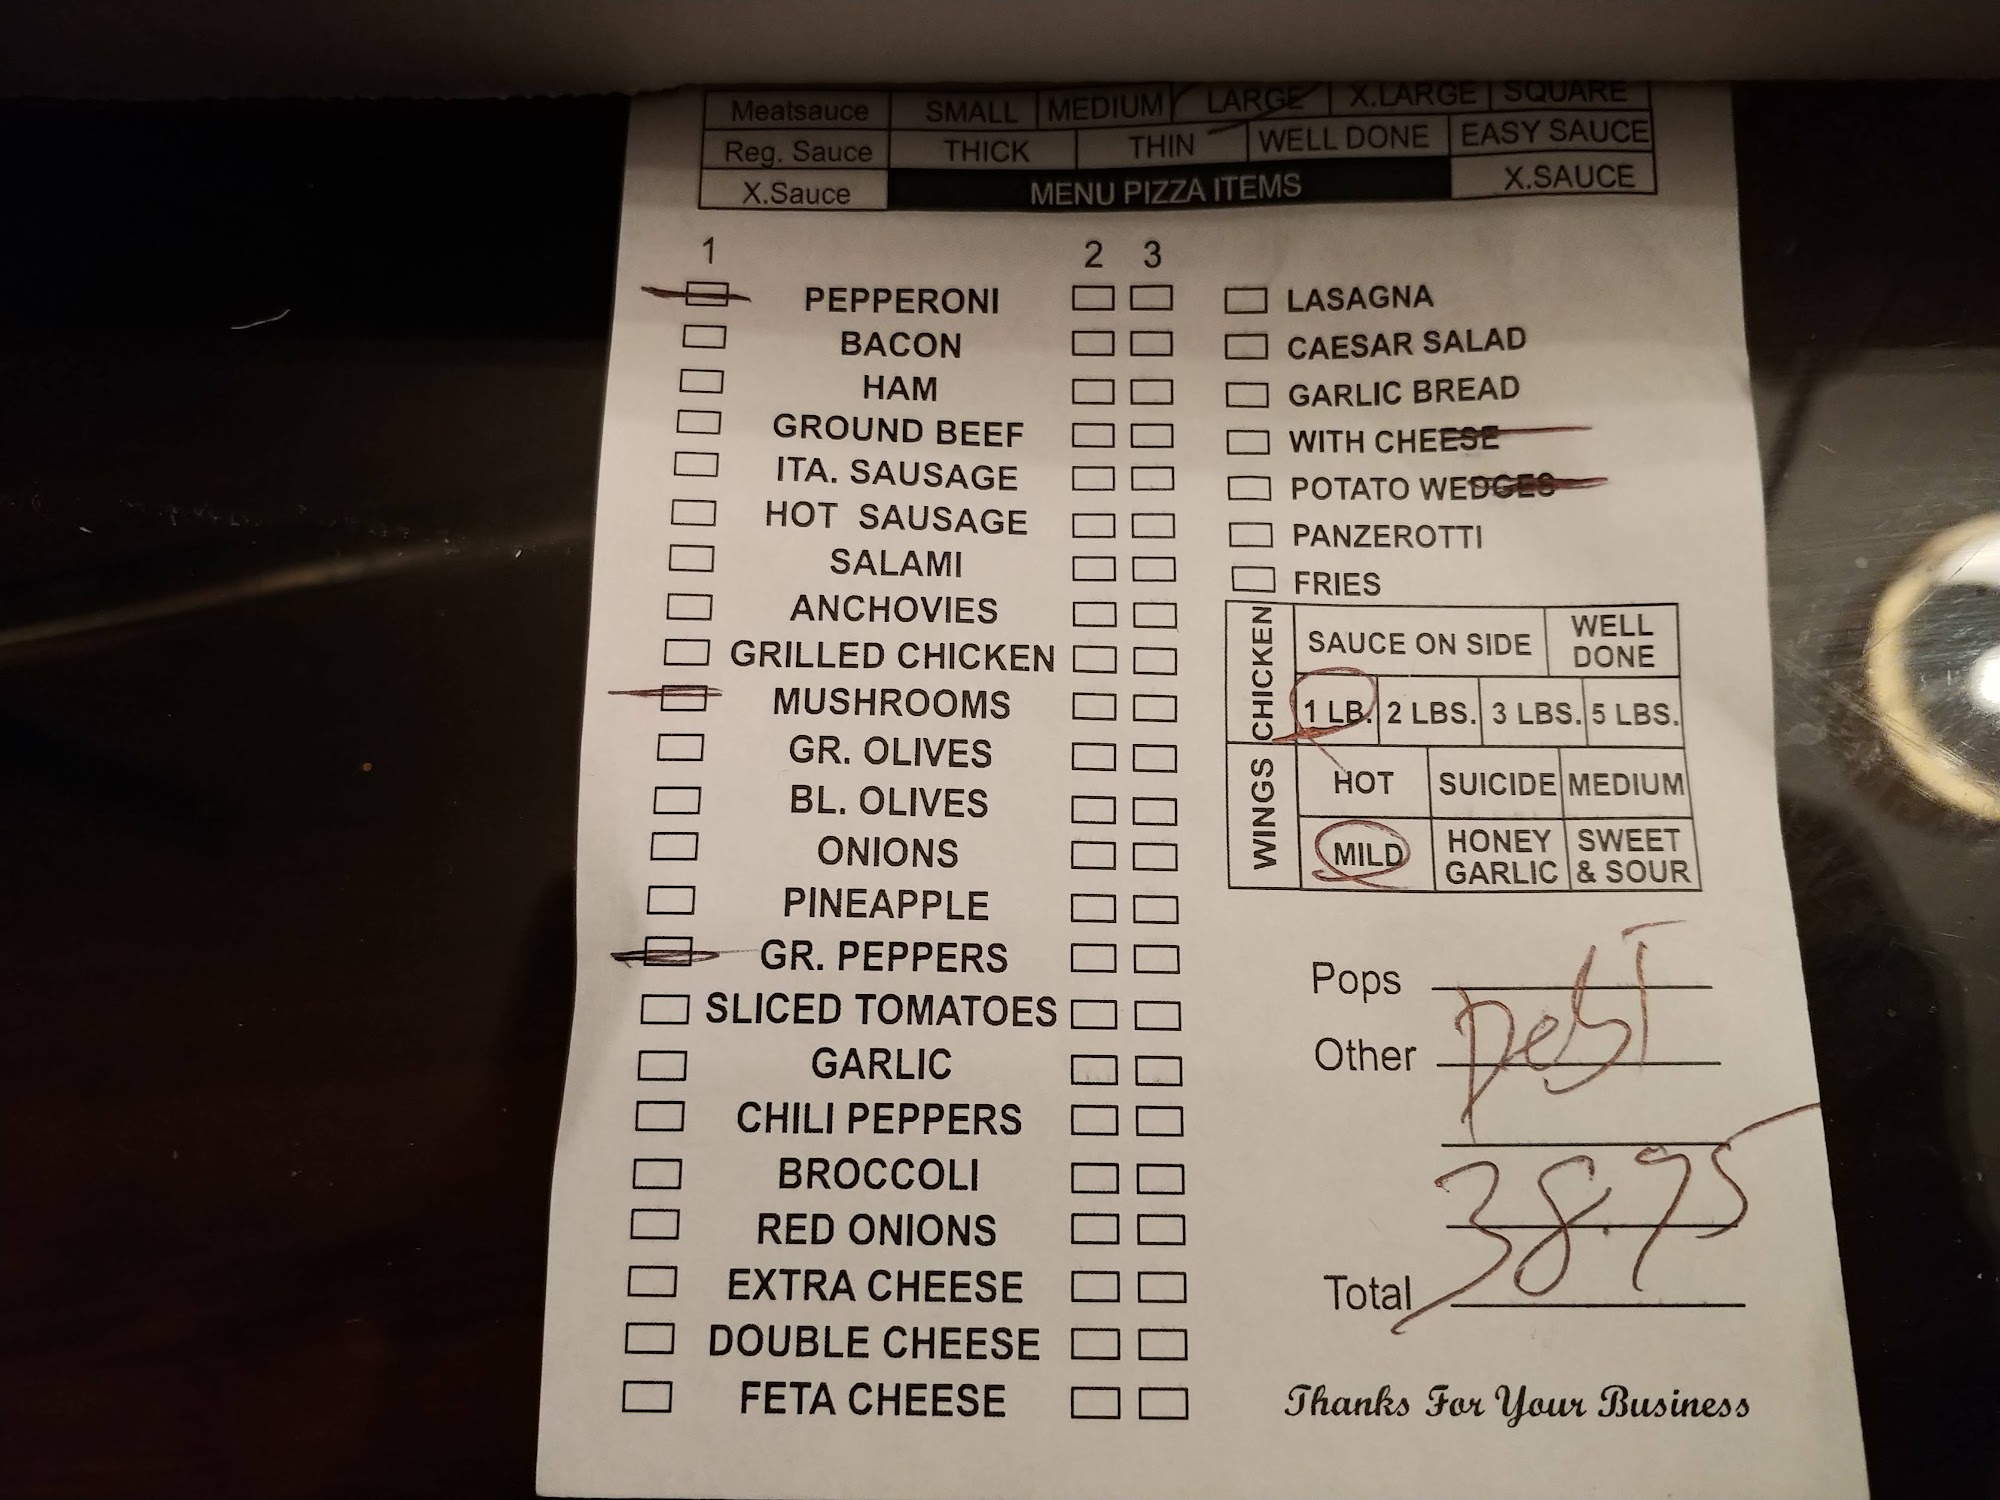 Meatsauce SMALL MEDIUM LARGE X.LARGE SQUARE
Reg. Sauce THICK THIN WELL DONE EASY SAUCE
X.Sauce MENU PIZZA ITEMS X.SAUCE
1 2 3
PEPPERONI LASAGNA
BACON CAESAR SALAD
HAM GARLIC BREAD
GROUND BEEF WITH CHEESE
ITA. SAUSAGE POTATO WEDGES
HOT SAUSAGE PANZEROTTI
SALAMI FRIES
ANCHOVIES
GRILLED CHICKEN
MUSHROOMS
GR. OLIVES
BL. OLIVES
ONIONS
PINEAPPLE
GR. PEPPERS
SLICED TOMATOES
GARLIC
CHILI PEPPERS
BROCCOLI
RED ONIONS
EXTRA CHEESE
DOUBLE CHEESE
FETA CHEESE
CHICKEN WINGS
SAUCE ON SIDE WELL DONE
1 LB. 2 LBS. 3 LBS. 5 LBS.
HOT SUICIDE MEDIUM
MILD HONEY GARLIC SWEET & SOUR
Pops
Other
38.95
Total
Thanks For Your Business